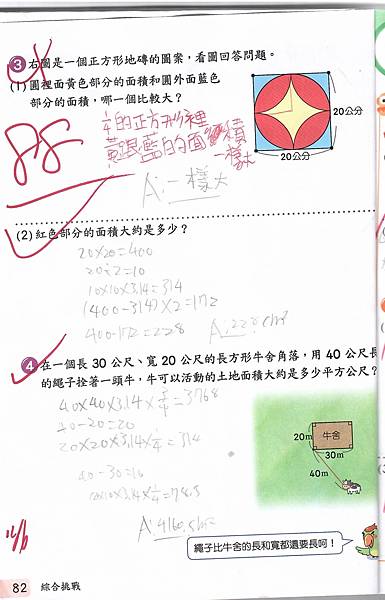 3 右圖是一個正方形地磚的圖案，看圖回答問題。
(1) 圓裡面黃色部分的面積和圓外面藍色
部分的面積，哪一個比較大？
20公分
20公分
88
¼的正方形裡
黃跟藍的面積
一樣大
A:一樣大
(2) 紅色部分的面積大約是多少？
20×20=400
20÷2=10
10×10×3.14=314
(400-314)×2=172
400-172=228
A:228cm²
4 在一個長 30 公尺、寬 20 公尺的長方形牛舍角落，用 40 公尺長
的繩子拴著一頭牛，牛可以活動的土地面積大約是多少平方公尺？
40×40×3.14×¾=3768
40-20=20
20×20×3.14×¼=314
40-30=10
10×10×3.14×¼=78.5
牛舍
20m
30m
40m
繩子比牛舍的長和寬都還要長呵！
82 綜合挑戰